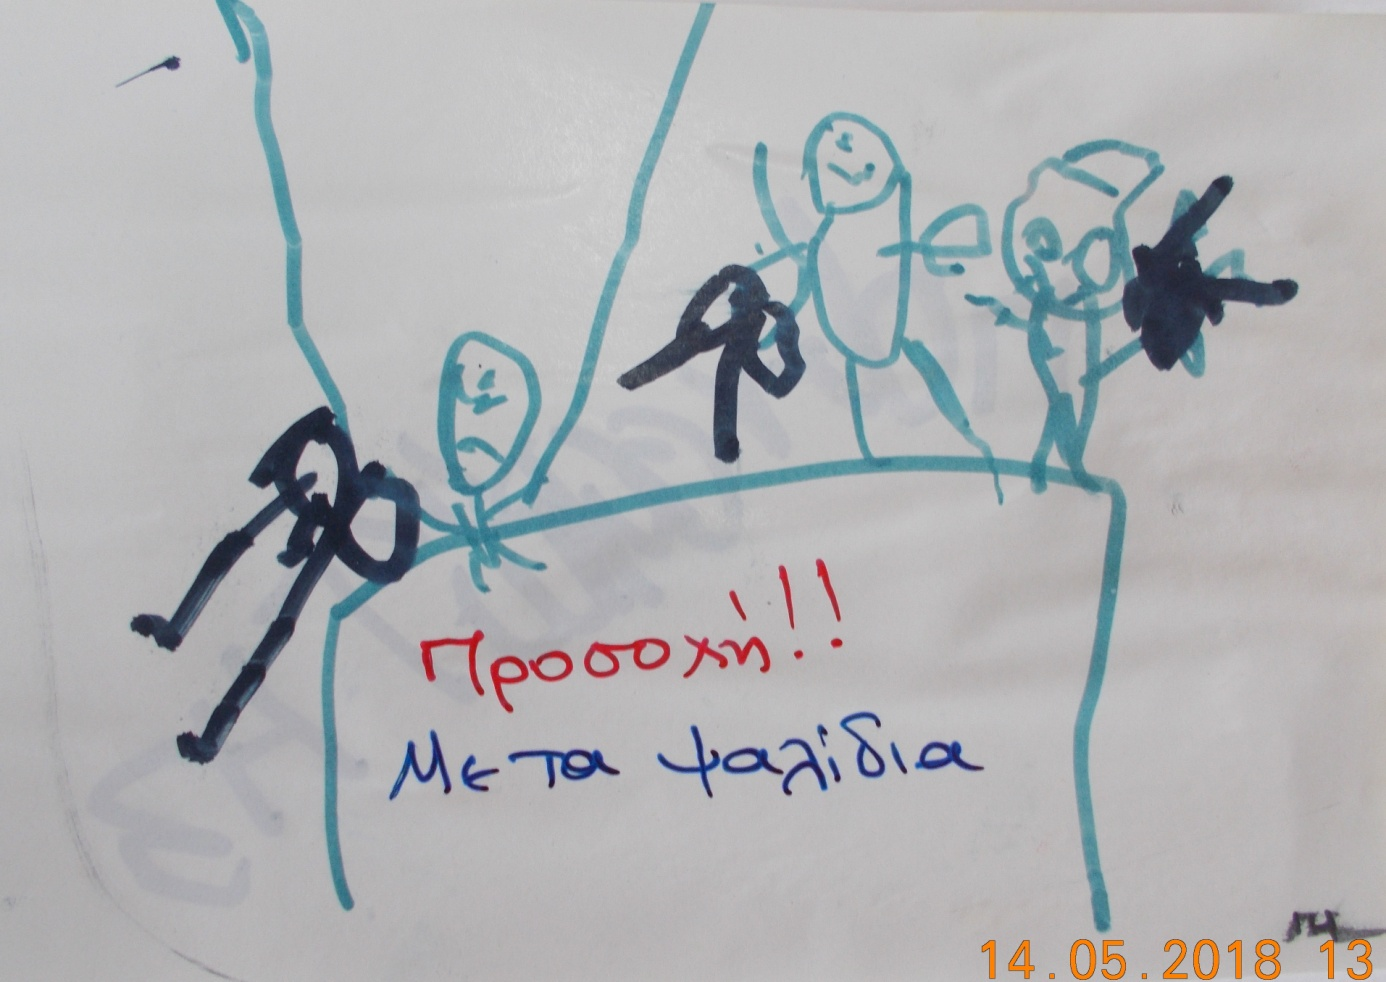 Προσοχή!!
Με τα ψαλίδια
14.05.2018 13